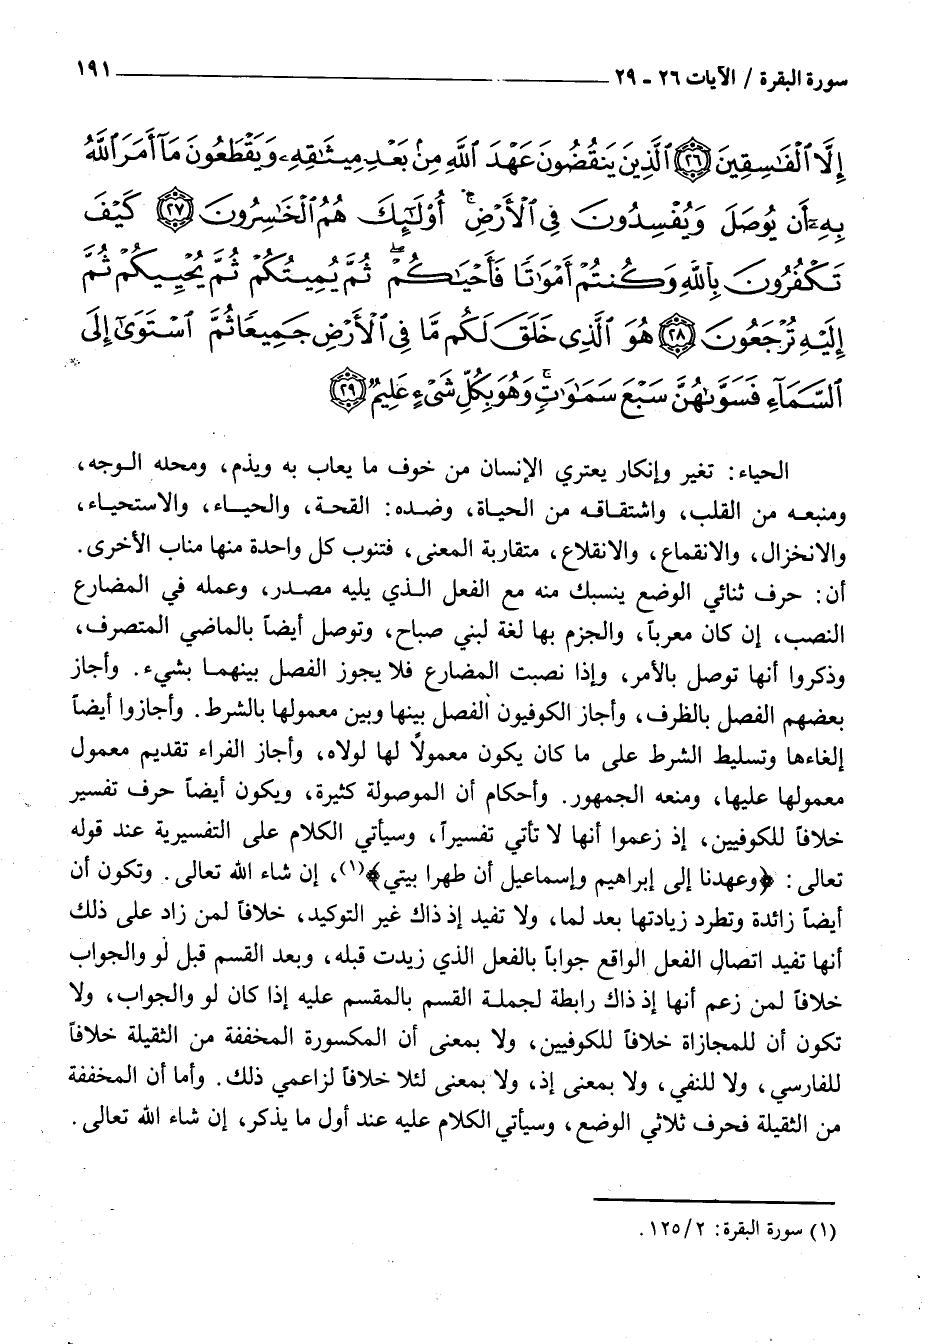 سورة البقرة / الآيات ٢٦ - ٢٩ ١٩١
إِلَّا ٱلْفَٰسِقِينَ ﴿٢٦﴾ ٱلَّذِينَ يَنقُضُونَ عَهْدَ ٱللَّهِ مِنۢ بَعْدِ مِيثَٰقِهِۦ وَيَقْطَعُونَ مَآ أَمَرَ ٱللَّهُ
بِهِۦٓ أَن يُوصَلَ وَيُفْسِدُونَ فِى ٱلْأَرْضِ ۚ أُو۟لَٰٓئِكَ هُمُ ٱلْخَٰسِرُونَ ﴿٢٧﴾ كَيْفَ
تَكْفُرُونَ بِٱللَّهِ وَكُنتُمْ أَمْوَٰتًا فَأَحْيَٰكُمْ ۖ ثُمَّ يُمِيتُكُمْ ثُمَّ يُحْيِيكُمْ ثُمَّ
إِلَيْهِ تُرْجَعُونَ ﴿٢٨﴾ هُوَ ٱلَّذِى خَلَقَ لَكُم مَّا فِى ٱلْأَرْضِ جَمِيعًا ثُمَّ ٱسْتَوَىٰٓ إِلَى
ٱلسَّمَآءِ فَسَوَّىٰهُنَّ سَبْعَ سَمَٰوَٰتٍ ۚ وَهُوَ بِكُلِّ شَىْءٍ عَلِيمٌ ﴿٢٩﴾
الحياء: تغير وإنكار يعتري الإنسان من خوف ما يعاب به ويذم، ومحله الوجه،
ومنبعه من القلب، واشتقاقه من الحياة، وضده: القحة، والحياء، والاستحياء،
والانخزال، والانقماع، والانقلاع، متقاربة المعنى، فتنوب كل واحدة منها مناب الأخرى.
أن: حرف ثنائي الوضع ينسبك منه مع الفعل الذي يليه مصدر، وعمله في المضارع
النصب، إن كان معرباً، والجزم بها لغة لبني صباح، وتوصل أيضاً بالماضي المتصرف،
وذكروا أنها توصل بالأمر، وإذا نصبت المضارع فلا يجوز الفصل بينهما بشيء. وأجاز
بعضهم الفصل بالظرف، وأجاز الكوفيون الفصل بينها وبين معمولها بالشرط. وأجازوا أيضاً
إلغاءها وتسليط الشرط على ما كان يكون معمولاً لها لولاه، وأجاز الفراء تقديم معمول
معمولها عليها، ومنعه الجمهور. وأحكام أن الموصولة كثيرة، ويكون أيضاً حرف تفسير
خلافاً للكوفيين، إذ زعموا أنها لا تأتي تفسيراً، وسيأتي الكلام على التفسيرية عند قوله
تعالى: ﴿وعهدنا إلى إبراهيم وإسماعيل أن طهرا بيتي﴾(١)، إن شاء الله تعالى. وتكون أن
أيضاً زائدة وتطرد زيادتها بعد لما، ولا تفيد إذ ذاك غير التوكيد، خلافاً لمن زاد على ذلك
أنها تفيد اتصال الفعل الواقع جواباً بالفعل الذي زيدت قبله، وبعد القسم قبل لو والجواب
خلافاً لمن زعم أنها إذ ذاك رابطة لجملة القسم بالمقسم عليه إذا كان لو والجواب، ولا
تكون أن للمجازاة خلافاً للكوفيين، ولا بمعنى أن المكسورة المخففة من الثقيلة خلافاً
للفارسي، ولا للنفي، ولا بمعنى إذ، ولا بمعنى لئلا خلافاً لزاعمي ذلك. وأما أن المخففة
من الثقيلة فحرف ثلاثي الوضع، وسيأتي الكلام عليه عند أول ما يذكر، إن شاء الله تعالى.
(١) سورة البقرة: ١٢٥/٢.